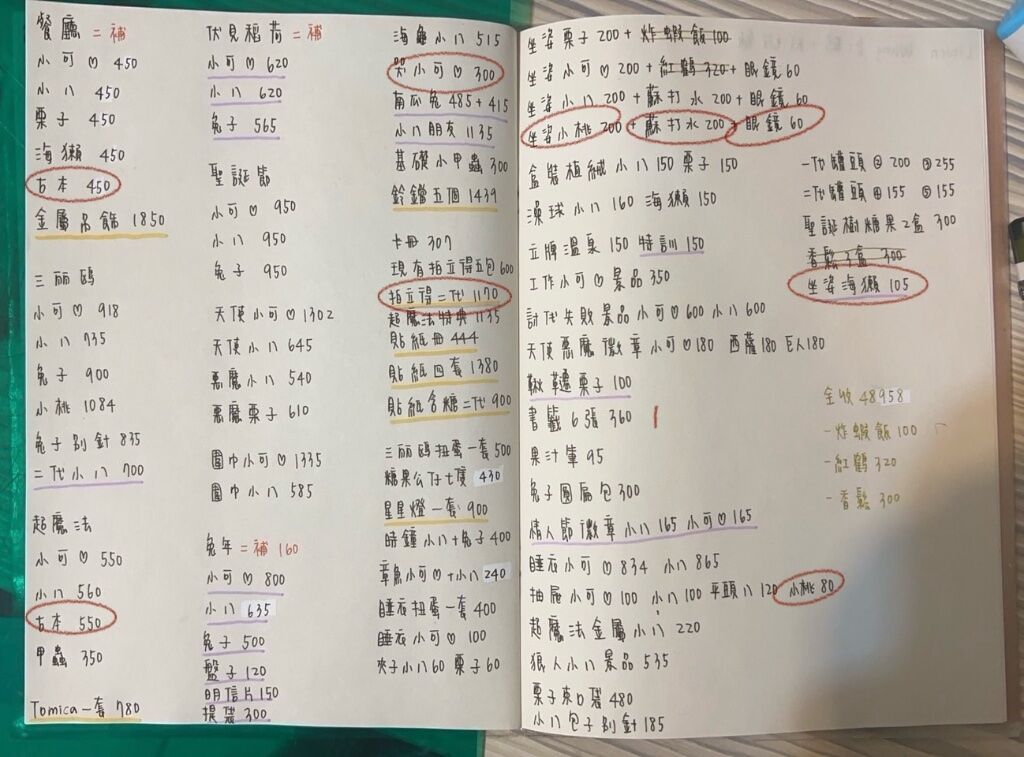 餐廳 = 補
小可♡ 450
小八 450
栗子 450
海獺 450
古本 450
金屬吊飾 1850
三丽鸥
小可♡ 918
小八 735
兔子 900
小桃 1084
兔子別針 835
二代小八 700
超魔法
小可♡ 550
小八 560
古本 550
甲蟲 350
Tomica一套 780
伏見稻荷 = 補
小可♡ 620
小八 620
兔子 565
聖誕節
小可♡ 950
小八 950
兔子 950
天使小可♡ 1302
天使小八 645
惡魔小八 540
惡魔栗子 610
圍巾小可♡ 1335
圍巾小八 585
兔年 = 補 160
小可♡ 800
小八 635
兔子 500
盤子 120
明信片 150
提袋 300
海龜小八 515
哭小可♡ 300
南瓜兔 485 + 415
小八朋友 1135
基礎小甲蟲 300
鈴鐺五個 1439
卡冊 307
現有拍立得五包 600
拍立得二代 1170
超魔法特典 1135
貼紙冊 444
貼紙四套 1380
貼紙含糖二代 900
三丽鸥扭蛋一套 500
糖果公仔七隻 430
星星燈一套 900
時鐘小八+兔子 400
章魚小可♡+小八 240
睡衣扭蛋一套 400
睡衣小可♡ 100
夾子小八60 栗子60
坐姿栗子 200 + 炸蝦飯 100
坐姿小可♡ 200 + 紅鶴 320 + 眼鏡 60
坐姿小八 200 + 蘇打水 200 + 眼鏡 60
坐姿小桃 200 + 蘇打水 200 + 眼鏡 60
盒裝植絨小八 150 栗子 150
澡球小八 160 海獺 150
立牌溫泉 150 特訓 150
工作小可♡景品 350
討伐失敗景品小可♡600 小八600
天使惡魔徽章小可♡180 西薩180 巨人180
鞦韆栗子 100
書籤6張 360
果汁筆 95
兔子圓扁包 300
情人節徽章小八 165 小可♡165
睡衣小可♡ 834 小八 865
抽屜小可♡100 小八100 平頭八120 小桃 80
超魔法金屬小八 220
狼人小八景品 535
栗子束口袋 480
小八包子別針 185
一代罐頭② 200 ③255
二代罐頭④155 ⑤155
聖誕樹糖果2盒 300
香鬆3盒 300
坐姿海獺 105
全收 48958
-炸蝦飯 100
-紅鶴 320
-香鬆 300